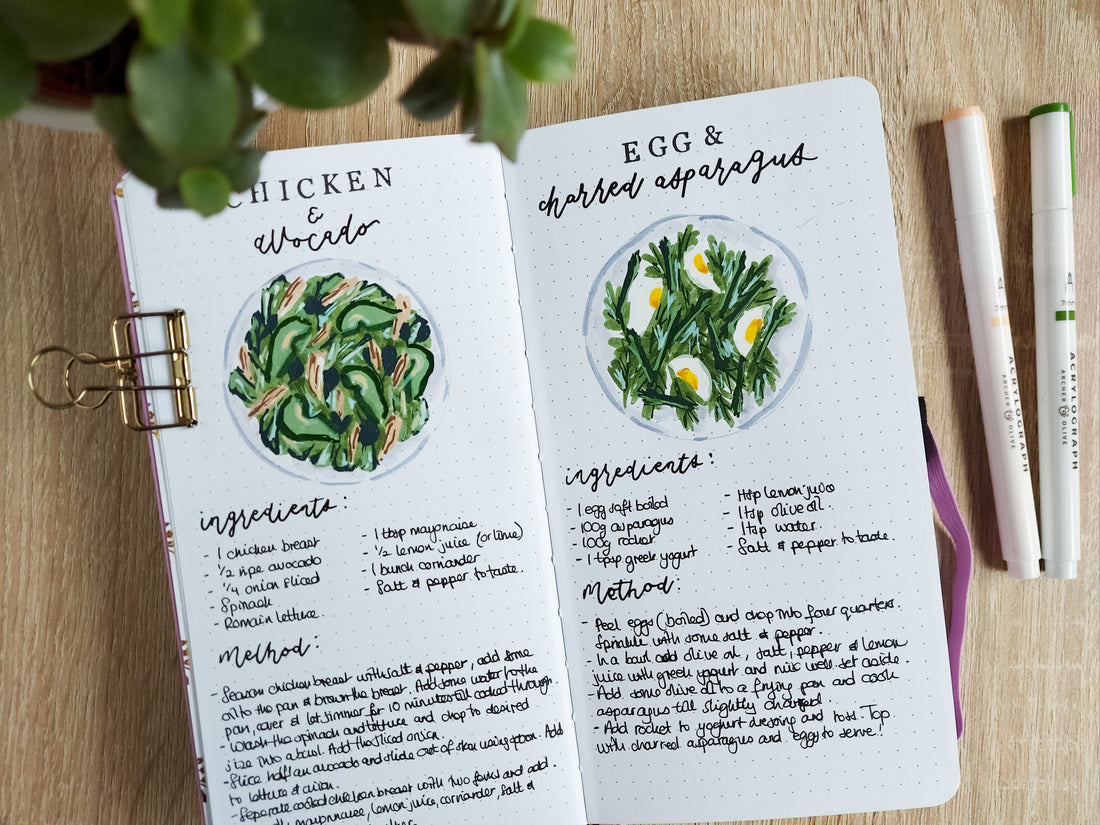 CHICKEN
&
avocado
ingredients:
- 1 chicken breast
- 1/2 ripe avocado
- 1/4 onion sliced
- Spinach
- Romain lettuce.
- 1 tbsp mayonaise
- 1/2 lemon juice (or lime)
- 1 bunch coriander
- Salt & pepper to taste.
Method:
- Season chicken breast with salt & pepper, add some
oil to the pan & brown the breast. Add some water to the
pan, cover & let simmer for 10 minutes till cooked through.
- Wash the spinach and lettuce and chop to desired
size into a bowl. Add the sliced onion.
- Slice half an avocado and slide out of skin using spoon. Add
to lettuce & onion.
- Seperate cooked chicken breast with two forks and add.
mayonnaise, lemon juice, coriander, salt &
EGG &
charred asparagus
ingredients:
- 1 egg soft boiled
- 100g asparagus
- 100g rocket
- 1 tbsp greek yogurt
- 1 tsp lemon juice
- 1 tsp olive oil.
- 1 tsp water.
- Salt & pepper to taste.
Method:
- Peel eggs (boiled) and chop into four quarters.
Sprinkle with some salt & pepper.
- In a bowl add olive oil, salt, pepper & lemon
juice with greek yogurt and mix well. set aside.
- Add some olive oil to a frying pan and cook
asparagus till slightly charred.
- Add rocket to yoghurt dressing and toss. Top
with charred asparagus and egg to serve!
ACRYLOGRAPH
ARCHER & OLIVE
.7mm
ACRYLOGRAPH
ARCHER & OLIVE